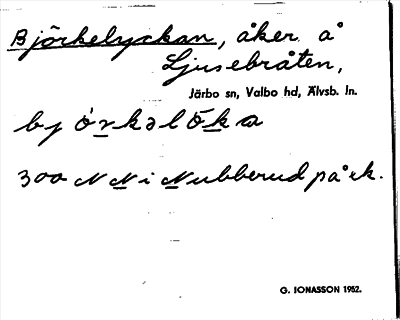 Björkelyckan, åker å
Ljusebråten,
Järbo sn, Valbo hd, Älvsb. ln.
bj ö́rkəlö̀ka
300 N N i Nubberud på ek.
G. IONASSON 1952.